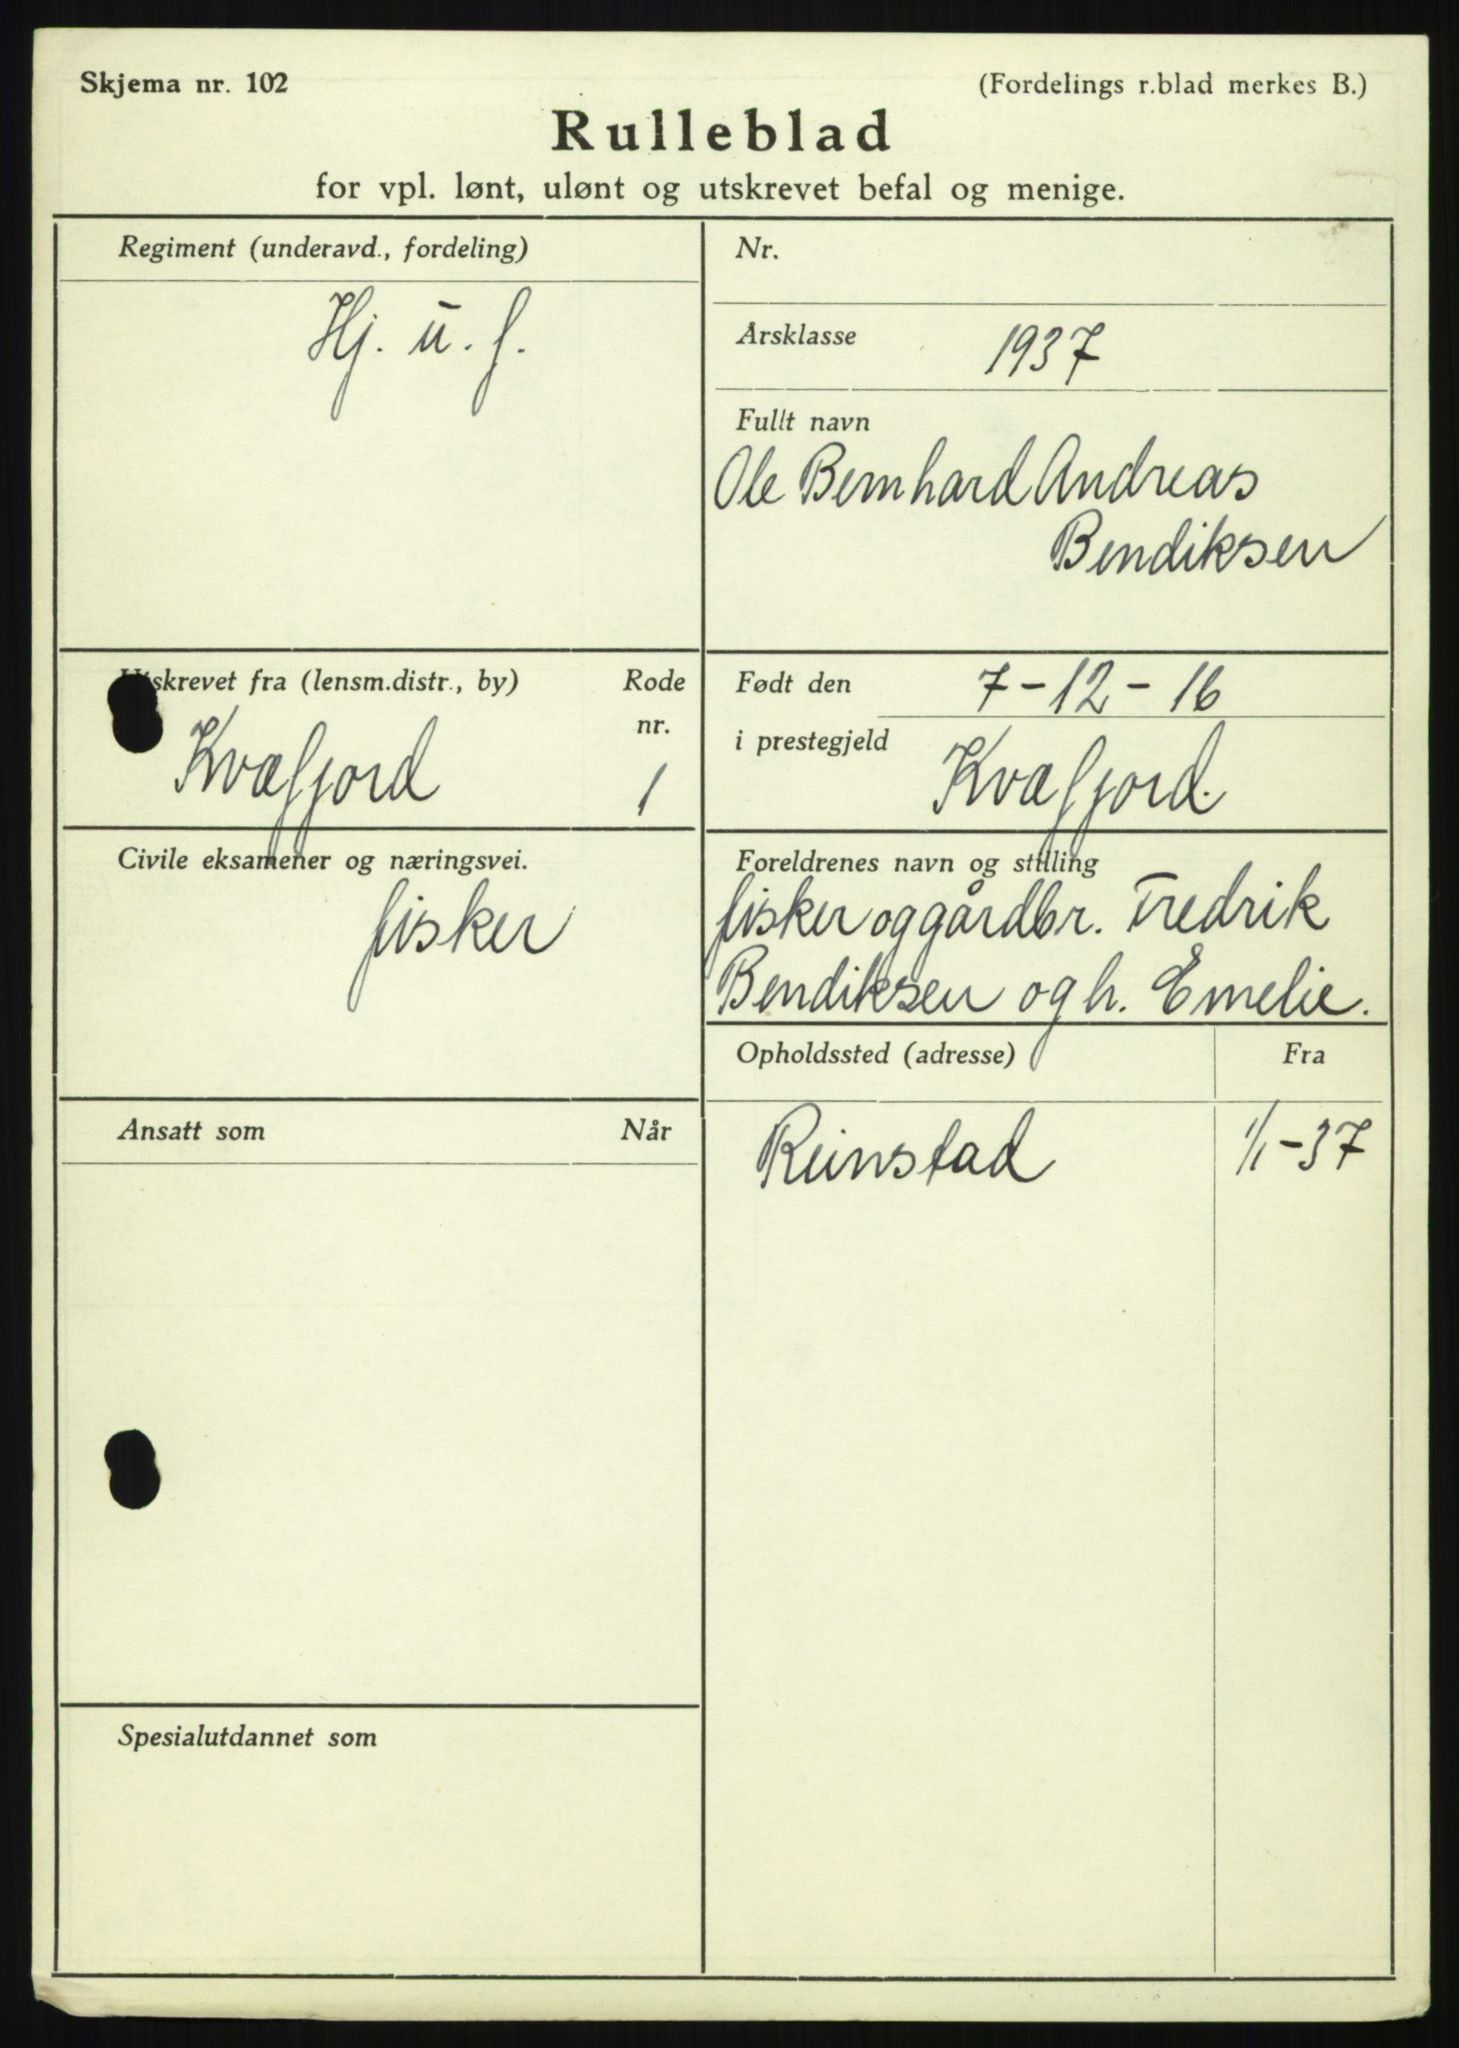 Skjema nr. 102
(Fordelings r.blad merkes B.)
Rulleblad
for vpl. lønt, ulønt og utskrevet befal og menige.
Regiment (underavd., fordeling)
Hj. u. f.
Nr.
Årsklasse
1937
Fullt navn
Ole Bernhard Andreas
Bendiksen
Utskrevet fra (lensm.distr., by)
Rode
nr.
Kvæfjord
1
Født den
7-12-16
i prestegjeld
Kvæfjord.
Civile eksamener og næringsvei.
fisker
Foreldrenes navn og stilling
fisker og gårdbr. Fredrik
Bendiksen og h. Emelie.
Opholdssted (adresse)
Fra
Reinstad
1/1-37
Ansatt som
Når
Spesialutdannet som